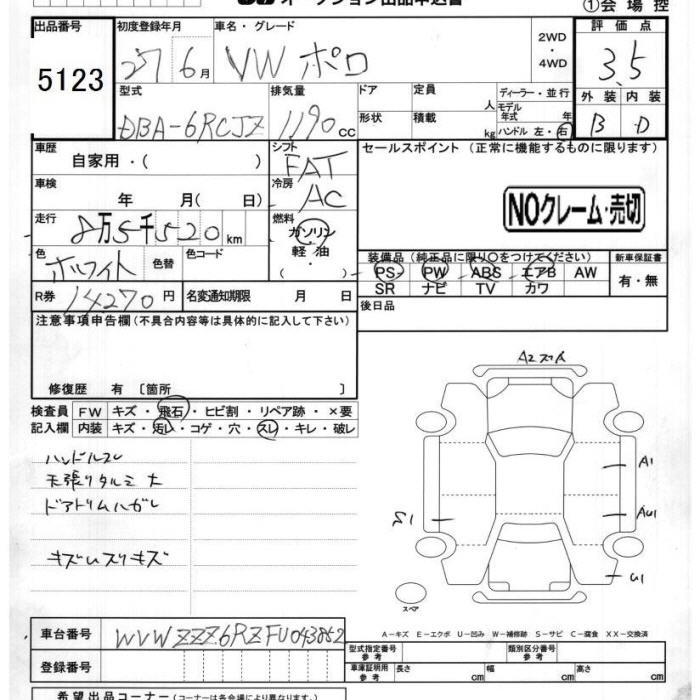 オークション出品申込書 ①会場控
出品番号 初度登録年月 車名・グレード 評価点
5123 27 6月 VW ポロ 2WD ・ 4WD 3.5
型式 排気量 ドア 定員 人 ディーラー・並行 外装 内装
DBA-6RCJZ 1190 cc 形状 積載 kg モデル年式 年 ハンドル 左・右 B D
車歴 自家用・( ) シフト FAT セールスポイント (正常に機能するものに限ります)
車検 年 月( 日) 冷房 AC
NOクレーム・売切
走行 8万5千520km 燃料 ガソリン・軽油・( )
色 ホワイト 色替 色コード 装備品(純正品に限り○をつけてください) 新車保証書
PS PW ABS エアB AW 有・無
SR ナビ TV カワ
R券 14270円 名変通知期限 月 日 後日品
注意事項申告欄(不具合内容等は具体的に記入して下さい)
修復歴 有 [箇所 ]
検査員 FW キズ・飛石・ヒビ割・リペア跡・×要
記入欄 内装 キズ・汚れ・コゲ・穴・スレ・キレ・破レ
ハンドルスレ
天張りタルミ大
ドアトリムハガレ
キズUスリキズ
A2スリ
A1
S1
AU1
U1
スペア
A-キズ E-エクボ U-凹み W-補修跡 S-サビ C-腐食 XX-交換済
車台番号 WVWZZZ6RZFU043852
登録番号
型式指定番号 参考 類別区分番号 参考
車庫証明用 参考 長さ cm 幅 cm 高さ cm
希望出品コーナー(コーナーは各会場により異なります。)